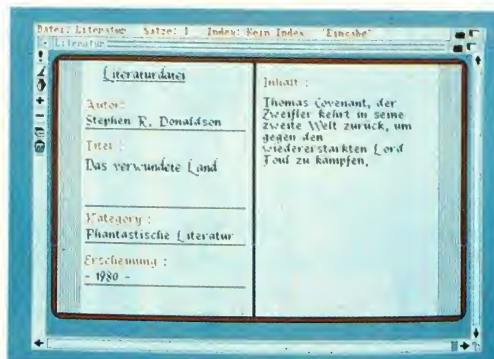 Datei: Literatur Sätze: 1 Index: Kein Index "Eingabe"
Literatur
Literaturdatei
Autor:
Stephen R. Donaldson
Titel :
Das verwundete Land
Kategory :
Phantastische Literatur
Erscheinung :
- 1980 -
Inhalt :
Thomas Covenant, der
Zweifler kehrt in seine
zweite Welt zurück, um
gegen den
wiedererstarkten Lord
Foul zu kämpfen.